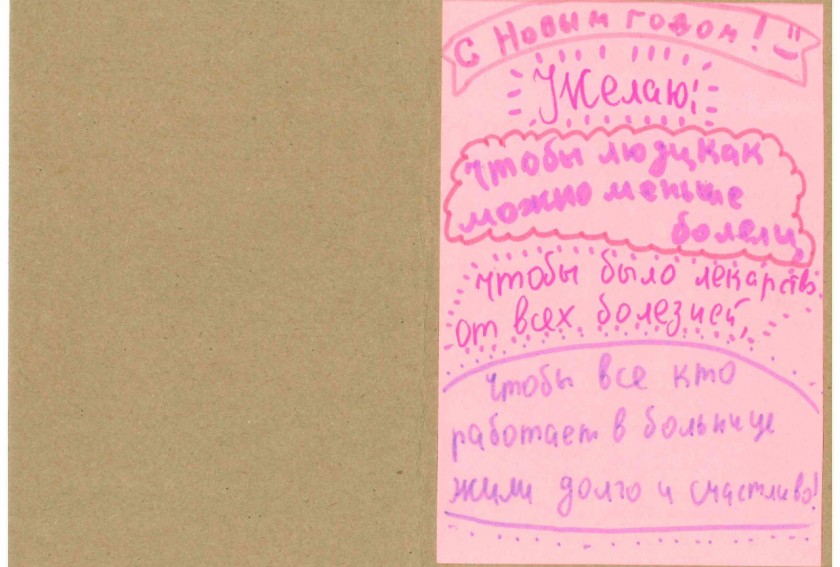 С Новым годом! =)
Желаю:
чтобы люди как
можно меньше
болели,
чтобы было лекарство
от всех болезней,
чтобы все кто
работает в больнице
жили долго и счастливо!